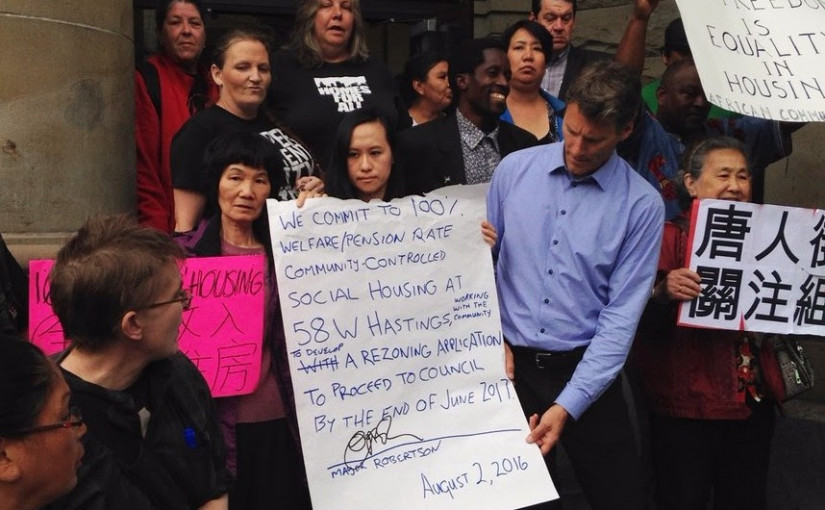 HOMES
FOR ALL
FREEDOM
IS
EQUALITY
IN
HOUSING
AFRICAN COMMU
WE COMMIT TO 100%
WELFARE/PENSION RATE
COMMUNITY-CONTROLLED
SOCIAL HOUSING AT
58 W HASTINGS, WORKING WITH THE COMMUNITY
TO DEVELOP
WITH A REZONING APPLICATION
TO PROCEED TO COUNCIL
BY THE END OF JUNE 2017.
MAYOR ROBERTSON
AUGUST 2, 2016
HOUSING
入
住房
唐人街
關注組